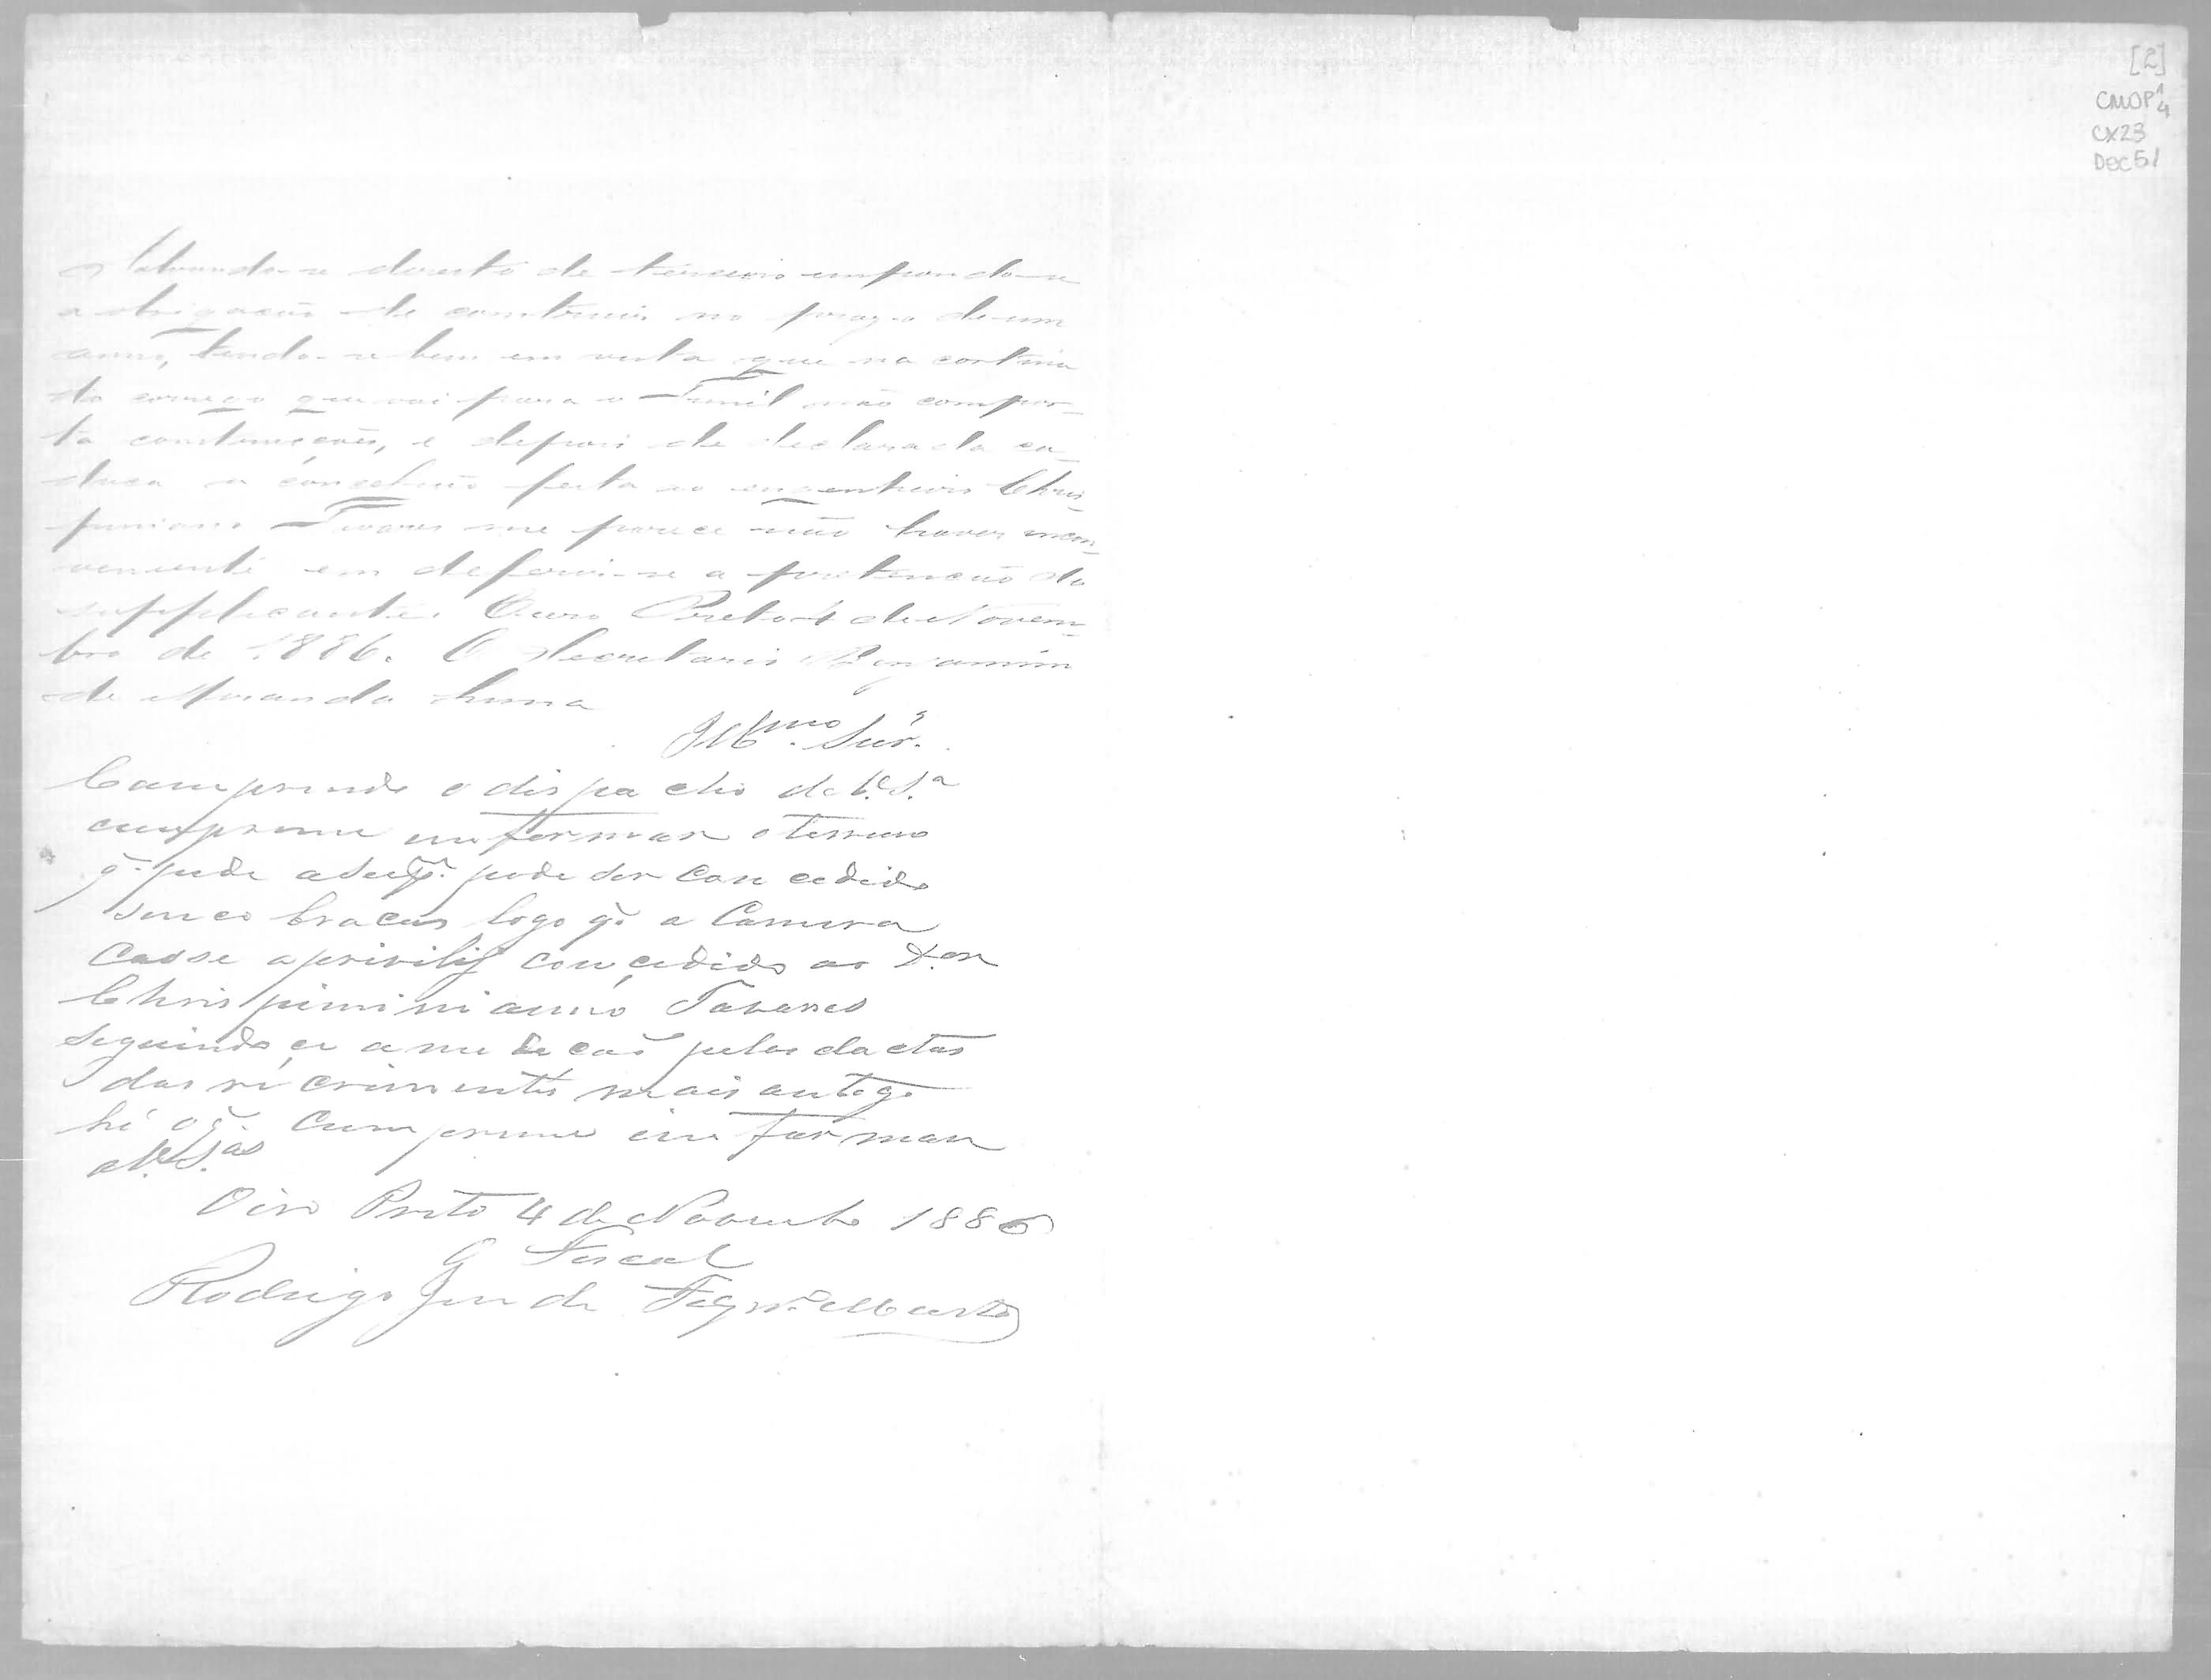 [2]
CMOP 1/4
CX23
Doc 51
Salvando-se direito de terceiro impondo-se
a obrigação de construir no prazo de um
anno, tendo-se bem em vista que na cortina
do corrego que vai para o Funil não compor-
ta construcções, e depois de declarada ca-
duca a concessão feita ao engenheiro Chris-
piniano Tavares me parece não haver incon-
veniente em deferir-se a pretenção do
supplicante. Ouro Preto 4 de Novem-
bro de 1886. O Secretario Benjamim
de Miranda Lima
Illmo. Snr.
Comprindo o dispacho de V.S.a
cumpreme informar o terreno
q. pede a Supp.e pode ser concedido
sinco bracas logo q. a Camera
Casse a privilig concedido ao
Chrispiminianno Tavares
seguindo ce a medecaõ pelas dactas
dos ricrimentes mais antigo
hé o q. Cumpreme informar
a V.S.as
Oiro Preto 4 de Novembro 1886
O Fiscal
Rodrigo José de